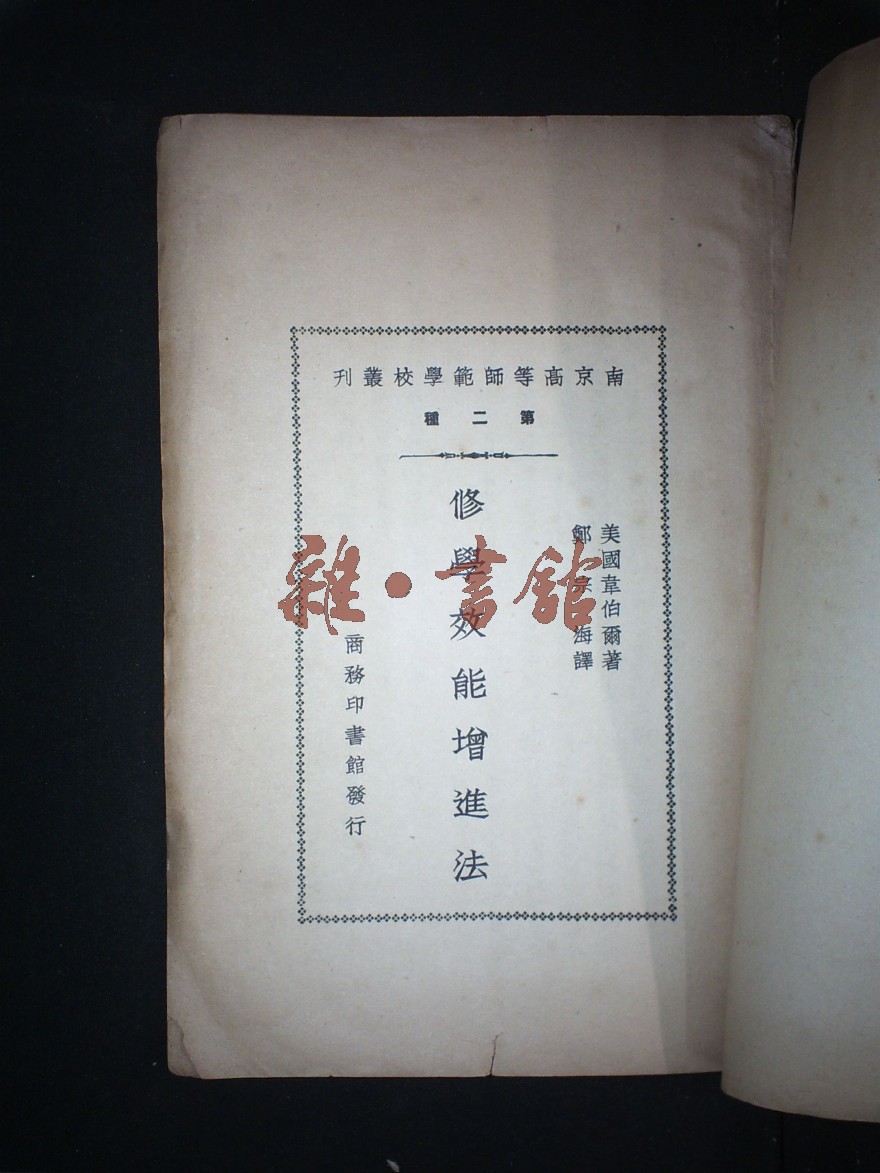 南京高等師範學校叢刊
第二種
美國韋伯爾著
鄭宗海譯
修學效能增進法
商務印書館發行
雜·書館